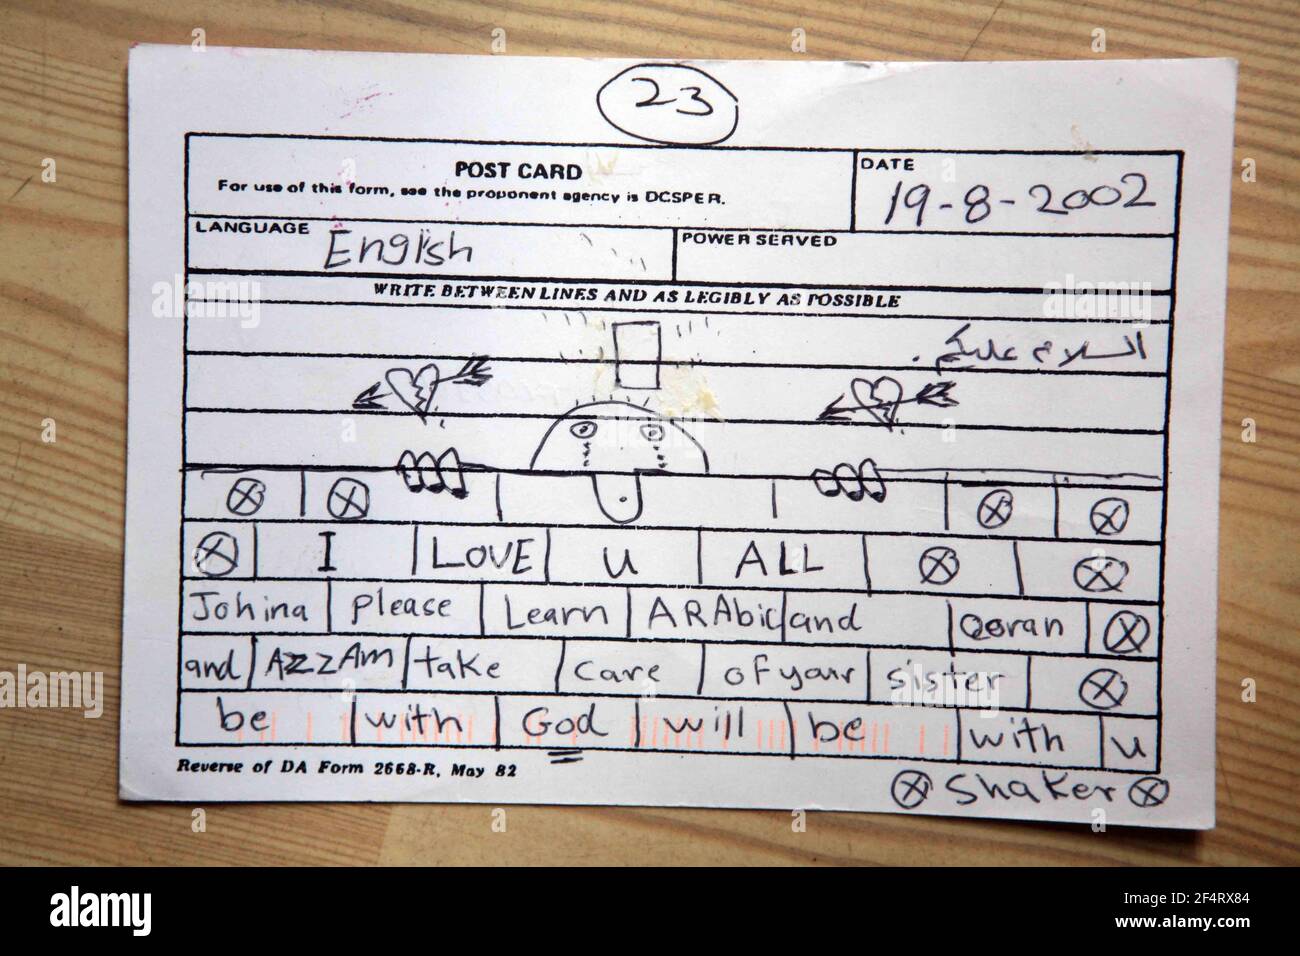 23
POST CARD
For use of this form, see the proponent agency is DCSPER.
DATE
19-8-2002
LANGUAGE English
POWER SERVED
WRITE BETWEEN LINES AND AS LEGIBLY AS POSSIBLE
السلام عليكم.
I LOVE u ALL
Johina please Learn ARAbic and Qoran
and AZZAM take care of your sister
be with God will be with u
Reverse of DA Form 2668-R, May 82
Shaker
alamy
Image ID: 2F4RX84
www.alamy.com